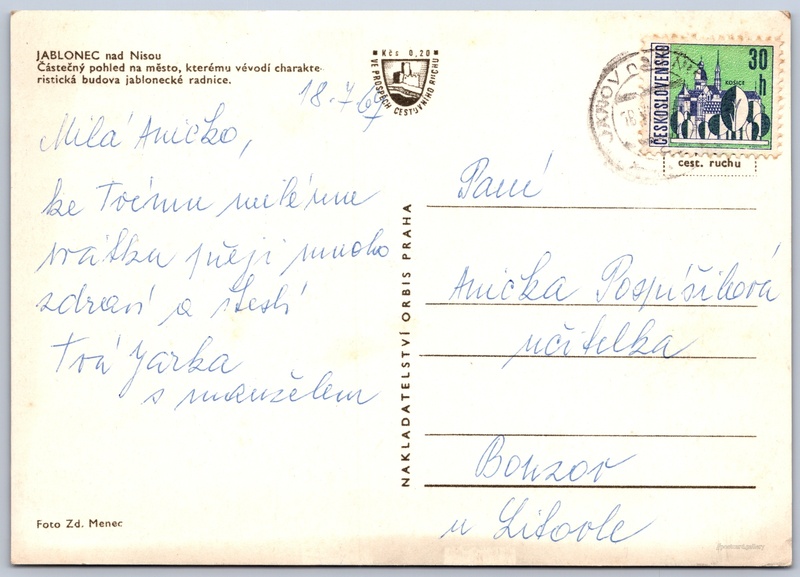 JABLONEC nad Nisou
Částečný pohled na město, kterému vévodí charakte-
ristická budova jablonecké radnice.
Kčs 0,20
VE PROSPĚCH CESTOVNÍHO RUCHU
18. 7. 69
Milá Aničko,
ke Tvému milému
svátku přeji mnoho
zdraví a štěstí
Tvá Jarka
s manželem
Foto Zd. Menec
NAKLADATELSTVÍ ORBIS PRAHA
ČESKOSLOVENSKO
30 h
KOŠICE
cest. ruchu
Paní
Anička Pospíšilová
učitelka
Bouzov
u Litovle